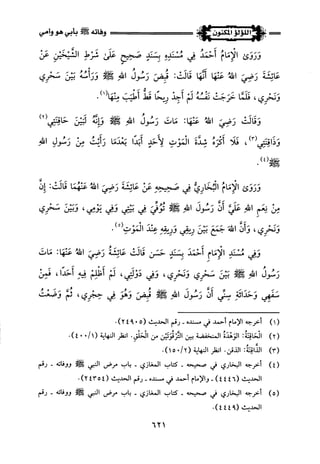 اللؤلؤ المكنون
وفاته ﷺ بأبي هو وأمي
وَرَوَى الْإِمَامُ أَحْمَدُ فِي مُسْنَدِهِ بِسَنَدٍ صَحِيحٍ عَلَى شَرْطِ الشَّيْخَيْنِ عَنْ
عَائِشَةَ رَضِيَ اللهُ عَنْهَا أَنَّهَا قَالَتْ: قُبِضَ رَسُولُ اللهِ ﷺ وَرَأْسُهُ بَيْنَ سَحْرِي
وَنَحْرِي، فَلَمَّا خَرَجَتْ نَفْسُهُ لَمْ أَجِدْ رِيحًا قَطُّ أَطْيَبَ مِنْهَا(١).
وَقَالَتْ رَضِيَ اللهُ عَنْهَا: مَاتَ رَسُولُ اللهِ ﷺ وَإِنَّهُ لَبَيْنَ حَاقِنَتِي(٢)
وَذَاقِنَتِي(٣)، فَلَا أَكْرَهُ شِدَّةَ الْمَوْتِ لِأَحَدٍ أَبَدًا بَعْدَمَا رَأَيْتُ مِنْ رَسُولِ اللهِ
ﷺ(٤).
وَرَوَى الْإِمَامُ الْبُخَارِيُّ فِي صَحِيحِهِ عَنْ عَائِشَةَ رَضِيَ اللهُ عَنْهُمَا قَالَتْ: إِنَّ
مِنْ نِعَمِ اللهِ عَلَيَّ أَنَّ رَسُولَ اللهِ ﷺ تُوُفِّيَ فِي بَيْتِي وَفِي يَوْمِي، وَبَيْنَ سَحْرِي
وَنَحْرِي، وَأَنَّ اللهَ جَمَعَ بَيْنَ رِيقِي وَرِيقِهِ عِنْدَ الْمَوْتِ(٥).
وَفِي مُسْنَدِ الْإِمَامِ أَحْمَدَ بِسَنَدٍ حَسَنٍ قَالَتْ عَائِشَةُ رَضِيَ اللهُ عَنْهَا: مَاتَ
رَسُولُ اللهِ ﷺ بَيْنَ سَحْرِي وَنَحْرِي، وَفِي دَوْلَتِي، لَمْ أَظْلِمْ فِيهِ أَحَدًا، فَمِنْ
سَفَهِي وَحَدَاثَةِ سِنِّي أَنَّ رَسُولَ اللهِ ﷺ قُبِضَ وَهُوَ فِي حِجْرِي، ثُمَّ وَضَعْتُ
(١) أخرجه الإمام أحمد في مسنده ـ رقم الحديث (٢٤٩٠٥).
(٢) الْحَاقِنَةُ: الوَهْدَةُ المنخفضة بين التَّرْقُوَتَيْنِ من الْحَلْقِ. انظر النهاية (٤٠٠/١).
(٣) الذَّاقِنَةُ: الذقن. انظر النهاية (١٥٠/٢).
(٤) أخرجه البخاري في صحيحه ـ كتاب المغازي ـ باب مرض النبي ﷺ ووفاته ـ رقم
الحديث (٤٤٤٦) ـ والإمام أحمد في مسنده ـ رقم الحديث (٢٤٣٥٤).
(٥) أخرجه البخاري في صحيحه ـ كتاب المغازي ـ باب مرض النبي ﷺ ووفاته ـ رقم
الحديث (٤٤٤٩).
٦٢١